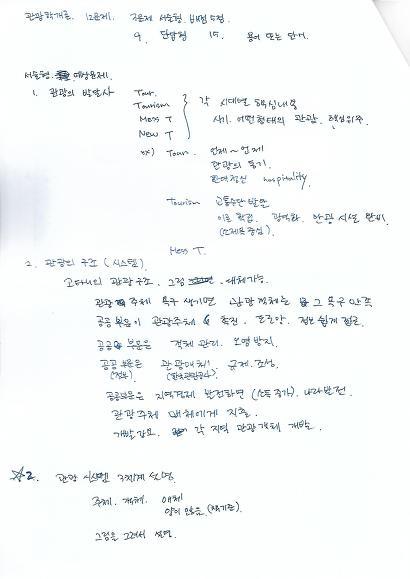 관광학개론. 12문제. 3문제 서술형. 배점 5점.
9. 단답형 1점. 용어 또는 단어
서술형. 예상문제.
1. 관광의 발달사
Tour.
Tourism
Mass T
New T
각 시대별 핵심내용
시기. 어떤형태의 관광. 핵심위주.
ex) Tour. 언제~언제
관광의 동기
환대정신 hospitality.
Tourism 교통수단 발달
이동 확대. 대중화. 관광 시설 완비.
Mass T.
2. 관광의 구조 (시스템).
관광의 구조. 그림 대체가능.
관광 주체 욕구 생기면 관광객체는 그 욕구 만족
공공부문이 관광주체 촉진. 정보 쉽게 접근.
공공 부문은 객체 관리. 오염방지.
공공 부문은 관광매체 규제. 조성.
(정부) (한국관광공사)
공공부문은 지역경제 발전하면 (소득 증가). 나라발전.
관광주체 매체에게 지출.
각 지역 관광객체 개발.
☆2. 관광 시스템 3가지 설명.
주체. 객체. 매체
그림을 그려서 설명.